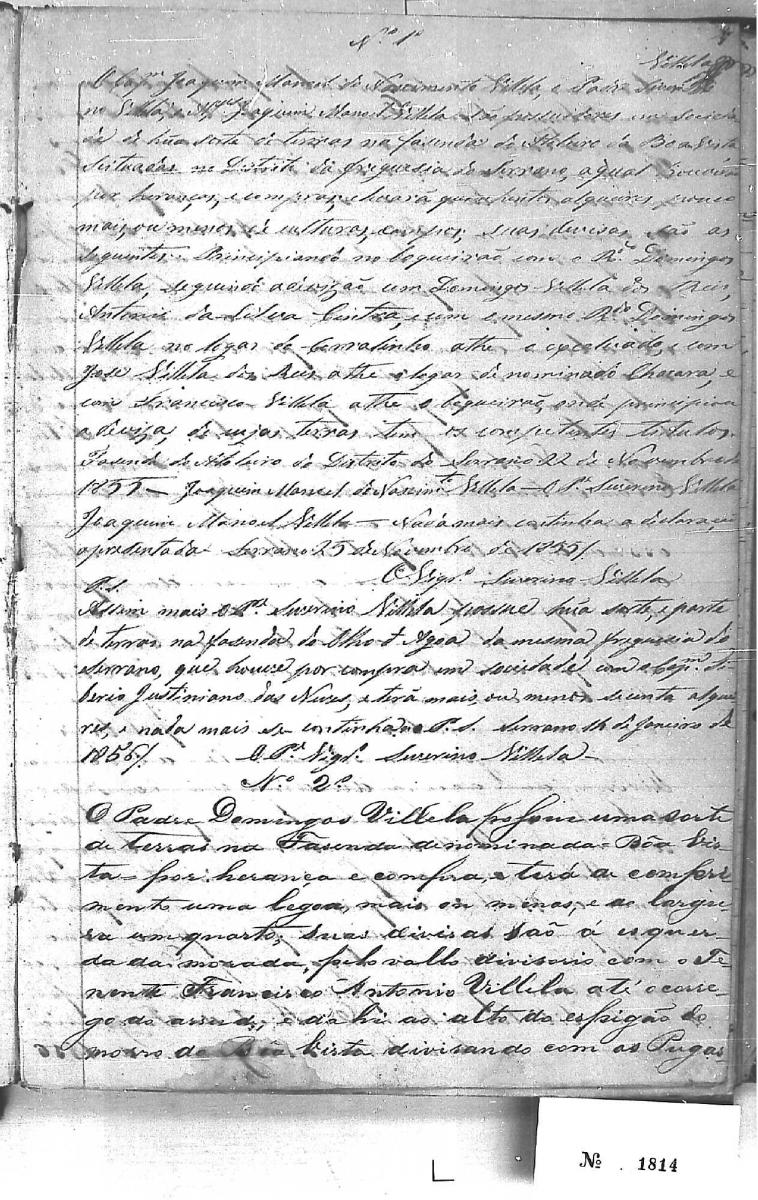 Nº 1º
Villela
O Capm. Joaquim Manoel do Nascimento Villela, e Padre Severi
no Villela, e Joaquim Manoel Villela são possuidores em socieda
de de hũa sorte de terras na fasenda do Atoleiro da Boa Vista
situadas no Distrito da freguesia do Serrano, a qual houverão
por herança, e compras, e levará quinhentos alqueires, pouco
mais, ou menos de culturas, e campos, suas devisas são as
seguintes. Principiando no boqueirão com o Rdo. Domingos
Villela, seguindo a divizão com Domingos Villela dos Reis,
Antonio da Silva Cintra, e com o mesmo Rdo. Domingos
Villela no lugar do Cerradinho athe o expeliado, e com
José Villela dos Reis athe o lugar denominado Chacara, e
com Francisco Villela athe o boqueirão, onde principiou
a deviza, de cujas terras tem os competentes titulos.
Fasenda do Atoleiro do Distrito do Serrano 22 de Novembro de
1855 — Joaquim Manoel do Nascimto. Villela — O Pe. Severino Villela
Joaquim Manoel Villela — Nada mais continha a declaração
apresentada Serrano 25 de Novembro de 1855/.
O Vigro. Severino Villela
P.S.
Assim mais o Pe. Severino Villela possue hũa sorte, e parte
de terras na fasenda do Olho d'Agoa da mesma freguesia do
Serrano, que houve por compra em sociedade com o Capm. Ti
berio Justiniano das Neves, e terá mais, ou menos secenta alquei
res, e nada mais se continha no P.S. Serrano 14 de Janeiro de
1856/. O Pe. Vigro. Severino Villela —
Nº 2º
O Padre Domingos Villela possue uma sorte
de terras na Fasenda denominada = Bôa Vis-
ta = por herança e compra, e terá de compri-
mento uma legoa, mais ou menos, e de largu-
ra um quarto; suas divisas são á esquer-
da da morada, pelo vallo divisorio com o Te-
nente Francisco Antonio Villela até o corre-
go do assude, e dahi ao alto do espigão do
morro da Bôa Vista divisando com os Pugas
Nº 1814